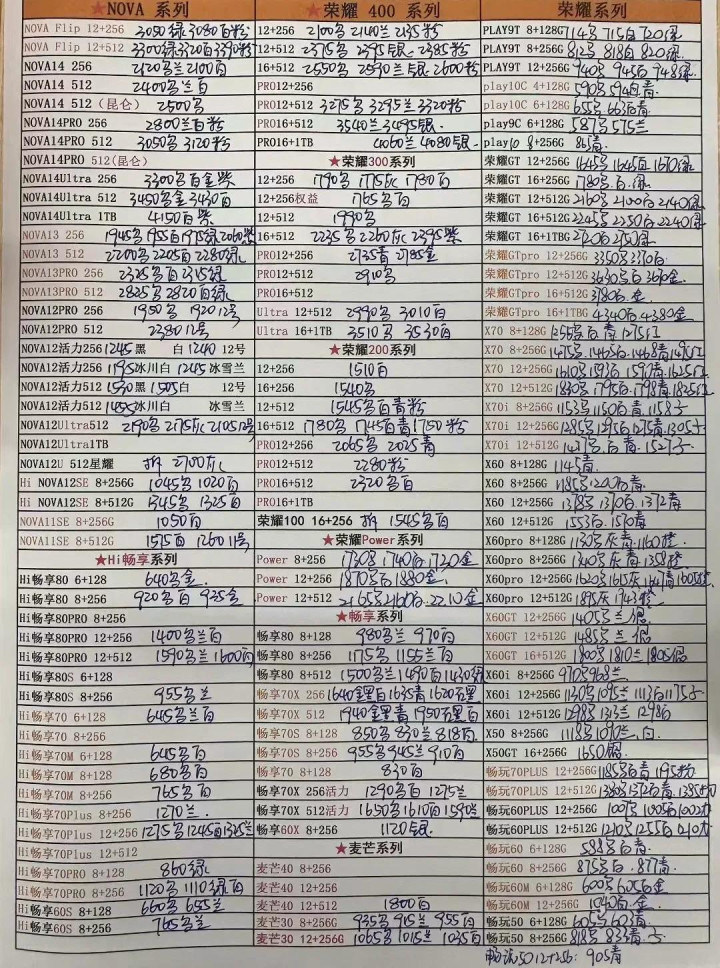 ★NOVA 系列
NOVA Flip 12+256 3050绿 3080白粉
NOVA Flip 12+512 3300绿 3320白 3390粉
NOVA14 256 2120兰 2100白
NOVA14 512 2400兰白
NOVA14 512 (昆仑) 2500多
NOVA14PRO 256 2800兰白粉
NOVA14PRO 512 3050多 3120粉
NOVA14PRO 512(昆仑)
NOVA14Ultra 256 3300多白金紫
NOVA14Ultra 512 3450多金 3430白
NOVA14Ultra 1TB 4150白紫
NOVA13 256 1945多 1955白 1975绿 2060紫
NOVA13 512 2200多 2205白 2280绿
NOVA13PRO 256 2325多白 2315绿
NOVA13PRO 512 2825多 2820白绿
NOVA12PRO 256 1950多 1920 12号
NOVA12PRO 512 2380 12号
NOVA12活力256 1245黑 白 1240 12号
NOVA12活力256 1195冰川白 1245 冰雪兰
NOVA12活力512 1530黑 1505白 12号
NOVA12活力512 1495冰川白 冰雪兰
NOVA12Ultra512 2190多 2175灰 2105 12号
NOVA12Ultra1TB
NOVA12U 512星耀 拆 2700灰
Hi NOVA12SE 8+256G 1045多 1020白
Hi NOVA12SE 8+512G 1345多 1325白
NOVA11SE 8+256G 1050白
NOVA11SE 8+512G 1575白 1260 11号
★Hi畅享系列
Hi畅享80 6+128 640多金
Hi畅享80 8+256 920多白 925金
Hi畅享80PRO 8+256
Hi畅享80PRO 12+256 1400多兰白
Hi畅享80PRO 12+512 1590多兰 1600白
Hi畅享80S 6+128
Hi畅享80S 8+256 955多兰
Hi畅享70 6+128 645多兰白
Hi畅享70 8+256
Hi畅享70M 6+128 645多白
Hi畅享70M 8+128 680多白
Hi畅享70M 8+256 765多白
Hi畅享70Plus 8+256 1270兰
Hi畅享70Plus 12+256 1275多 1245白 1325兰
Hi畅享70Plus 12+512
Hi畅享70PRO 8+128 860绿
Hi畅享70PRO 8+256 1120多 1110绿白
Hi畅享60S 8+128 660多 655兰
Hi畅享60S 8+256 765多兰
★荣耀 400 系列
12+256 2100多 2140兰 2135粉
12+512 2375多 2395银 2385粉
16+512 2550多 2590兰银 2600粉
PRO12+256
PRO12+512 3275多 3295兰 3320粉
PRO16+512 3540兰 3495银
PRO16+1TB 4060兰 4080银
★荣耀300系列
12+256 1790多 1775灰 1780白
12+256权益 1765多白
12+512 1990多
16+512 2235多 2260灰 2295紫
PRO12+256 2735青 2785金
PRO12+512 2910多
PRO16+512
Ultra 12+512 2990多 3010白
Ultra 16+1TB 3510多 3530白
★荣耀200系列
12+256 1510白
16+256 1540多
12+512 1545多白青粉
16+512 1780多 1745白青 1750粉
PRO12+256 2065多 2025青
PRO12+512 2280粉
PRO16+512 2320多白
PRO16+1TB
荣耀100 16+256 拆 1545多白
★荣耀Power系列
Power 8+256 1730多 1740白 1720金
Power 12+256 1870多白 1880金
Power 12+512 2165多 2160白 2210金
★畅享系列
畅享80 8+128 980兰 970白
畅享80 8+256 1175多 1155兰白
畅享80 8+512 1500多兰 1490白 1430粉
畅享70X 256 1640金黑白 1635青 1620白黑
畅享70X 512 1940金黑青 1950白黑白
畅享70S 8+128 850多 830兰 818白
畅享70S 8+256 955多 945兰 910白
畅享70 8+128 830白
畅享70X 256活力 1290多白 1275兰
畅享70X 512活力 1650多 1610白 1590兰
畅享60X 8+256 1120银
★麦芒系列
麦芒40 8+256
麦芒40 12+256
麦芒40 12+512 1800白
麦芒30 8+256G 935多 915兰 955白
麦芒30 12+256G 1065多 1015兰 1035白
荣耀系列
PLAY9T 8+128G 714多 715白 720绿
PLAY9T 8+256G 812多 818白 820绿
PLAY9T 12+256G 940多 945白 948绿
play10C 4+128G 590多 594白青
play10C 6+128G 655多 663白青
play9C 6+128G 587多 575兰
play10 8+256G 865青
荣耀GT 12+256G 1645多 1645白 1610绿
荣耀GT 16+256G 1780多.白.绿
荣耀GT 12+512G 2160多 2100白 2140绿
荣耀GT 16+512G 2245多 2250白 2240绿
荣耀GT 16+1TBG 2720白 2750绿
荣耀GTpro 12+256G 3350多 3370白
荣耀GTpro 12+512G 3630多白 3690金
荣耀GTpro 16+512G 3780白.金
荣耀GTpro 16+1TBG 4340白 4380金
X70 8+128G 1256多白青 1275红
X70 8+256G 1475多.1465白 1468青 1495红
X70 12+256G 1610多 1593白 1590青 1625红
X70 12+512G 1830多 1795白 1798青 1825红
X70i 8+256G 1153多 1150白青.1158子
X70i 12+256G 1285多 1295白 1275青 1305子
X70i 12+512G 1427多.白青.1527子
X60 8+128G 1145青
X60 8+256G 1185多 1200白青
X60 12+256G 1378多 1370白.1372青
X60 12+512G 1553白.1570青
X60pro 8+128G 1130多灰青 1160橙
X60pro 8+256G 1340多灰青 1358橙
X60pro 12+256G 1620多 1615灰 1427青 1605橙
X60pro 12+512G 1895灰 1743橙
X60GT 12+256G 1405兰.银
X60GT 12+512G 1485兰.银
X60GT 16+512G 1800多 1810兰 1805银
X60i 8+256G 970多 968兰
X60i 12+256G 1130多 1095兰 1113白 1175子
X60i 12+512G 1298多 1313兰 1298白
X50 8+256G 1118多 1090兰.白
X50GT 16+256G 1650银
畅玩70PLUS 12+256G 1185多白青 1195粉
畅玩70PLUS 12+512G 1380多 1372白青 1385粉
畅玩60PLUS 12+256G 1007多 1005白 1002粉
畅玩60PLUS 12+512G 1210多 1255白 1210粉
畅玩60 6+128G 588多青
畅玩60 8+256G 875多白.877青
畅玩60M 6+128G 600多 605白金
畅玩60M 12+256G 1040白.金
畅玩50 6+128G 605多 603青
畅玩50 8+256G 818多 833青子
畅玩50 12+256: 905青